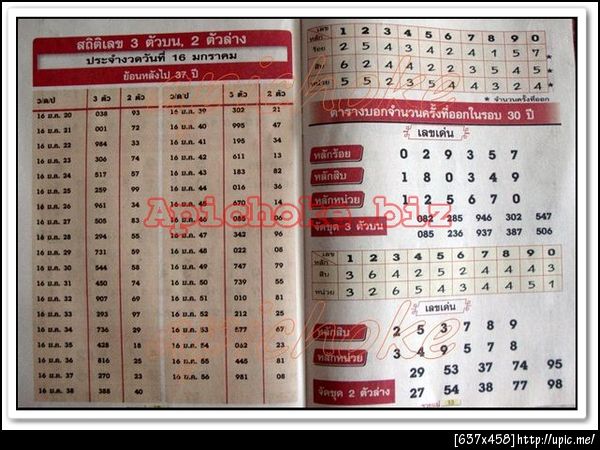 สถิติเลข 3 ตัวบน, 2 ตัวล่าง
ประจำงวดวันที่ 16 มกราคม
ย้อนหลังไป 37 ปี
ว/ด/ป 3 ตัว 2 ตัว ว/ด/ป 3 ตัว 2 ตัว
16 ม.ค. 20 038 93 16 ม.ค. 39 302 21
16 ม.ค. 21 001 72 16 ม.ค. 40 995 47
16 ม.ค. 22 984 33 16 ม.ค. 41
16 ม.ค. 23 306 74 16 ม.ค. 42 611 13
16 ม.ค. 24 517 57 16 ม.ค. 43 183 82
16 ม.ค. 25 259 59 16 ม.ค. 44 016 36
16 ม.ค. 26 16 ม.ค. 45
16 ม.ค. 27 505 83 16 ม.ค. 46 06
16 ม.ค. 28 294 55 16 ม.ค. 47 342 96
16 ม.ค. 29 011 35 16 ม.ค. 48 022 08
16 ม.ค. 30 544 58 16 ม.ค. 49 747 79
16 ม.ค. 31 450 74 16 ม.ค. 50
16 ม.ค. 32 907 69 16 ม.ค. 51 010 81
16 ม.ค. 33 93 16 ม.ค. 52
16 ม.ค. 34 736 29 16 ม.ค. 53 577 67
16 ม.ค. 35 428 18 16 ม.ค. 54 062 23
16 ม.ค. 36 816 25 16 ม.ค. 55 445 81
16 ม.ค. 37 270 23 16 ม.ค. 56 981 08
16 ม.ค. 38 388 40
เลข หลัก 1 2 3 4 5 6 7 8 9 0
ร้อย 2 5 4 3 4 2 4 1 5 7
สิบ 6 2 4 4 2 2 3 5 4 5 *
หน่วย 5 5 2 3 5 4 5 *
* จำนวนครั้งที่ออก
ตารางบอกจำนวนครั้งที่ออกในรอบ 30 ปี
เลขเด่น
หลักร้อย 0 2 9 3 5 7
หลักสิบ 1 8 0 3 4 9
หลักหน่วย 1 2 5 6 7 0
จัดชุด 3 ตัวบน 082 285 946 302 547
085 236 937 387 506
เลข หลัก 1 2 3 4 5 6 7 8 9 0
สิบ 3 6 4 2 5 2 4 4 4 3
หน่วย
เลขเด่น
หลักสิบ 2 5 3 7 8 9
หลักหน่วย 3 4 9 5 7 8
จัดชุด 2 ตัวล่าง 29 53 37 74 95
27 54 38 77 98
Apichoke.biz
apichoke
apichoke
[637x458] http://upic.me/